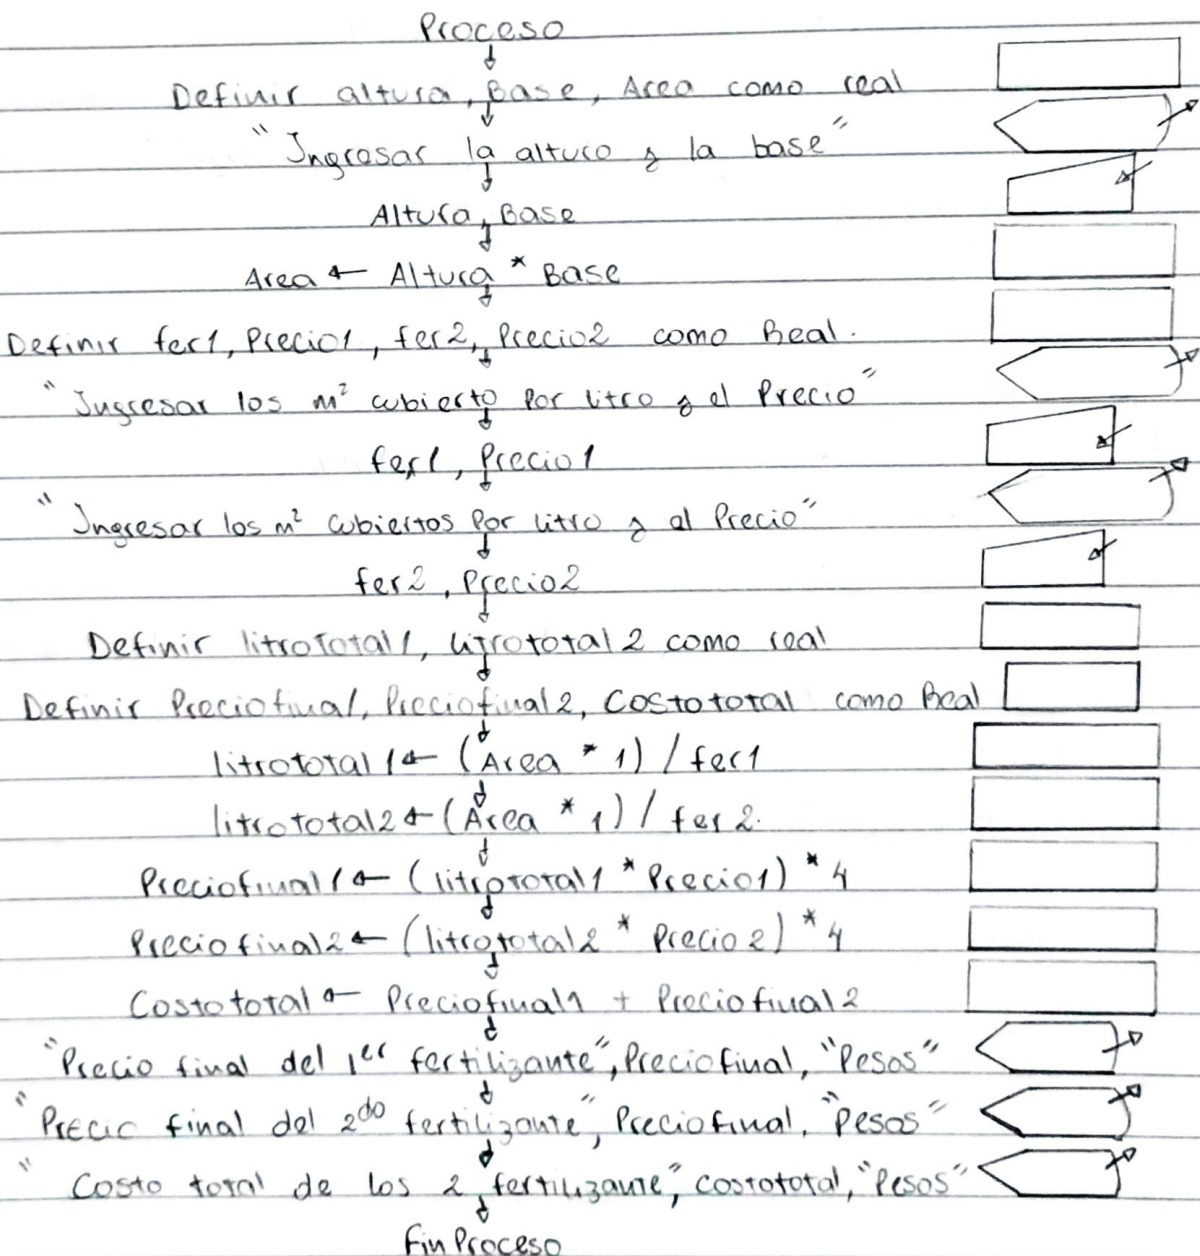 Proceso
Definir altura, Base, Area como real
"Ingresar la altura y la base"
Altura, Base
Area ← Altura * Base
Definir fer1, Precio1, fer2, Precio2 como Real.
"Ingresar los m² cubierto por litro y el Precio"
fer1, Precio1
"Ingresar los m² cubiertos Por litro y el Precio"
fer2, Precio2
Definir litroTotal1, litrototal2 como real
Definir Preciofinal, Preciofinal2, Costototal como Real
litrototal1 ← (Area * 1) / fer1
litrototal2 ← (Area * 1) / fer2.
Preciofinal1 ← (litrototal1 * Precio1) * 4
Preciofinal2 ← (litrototal2 * Precio2) * 4
Costototal ← Preciofinal1 + Preciofinal2
"Precio final del 1er fertilizante", Preciofinal, "Pesos"
"Precio final del 2do fertilizante", Preciofinal, "Pesos"
"Costo total de los 2 fertilizante", costototal, "Pesos"
Fin Proceso